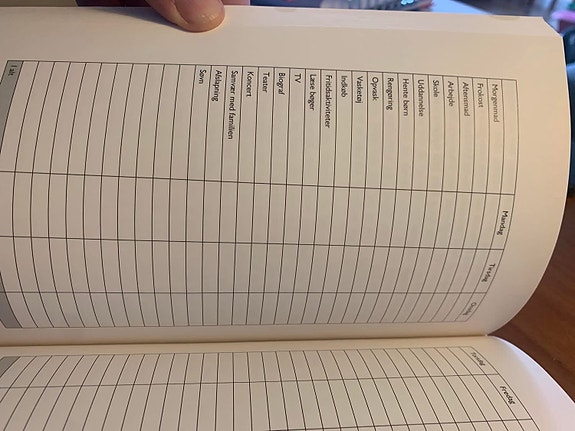 Mandag
Tirsdag
Onsdag
Torsdag
Fredag
Morgenmad
Frokost
Aftensmad
Arbejde
Skole
Uddannelse
Hente børn
Rengøring
Opvask
Vasketøj
Indkøb
Fritidsaktiviteter
Læse bøger
TV
Biograf
Teater
Koncert
Samvær med familien
Afslapning
Søvn
I alt